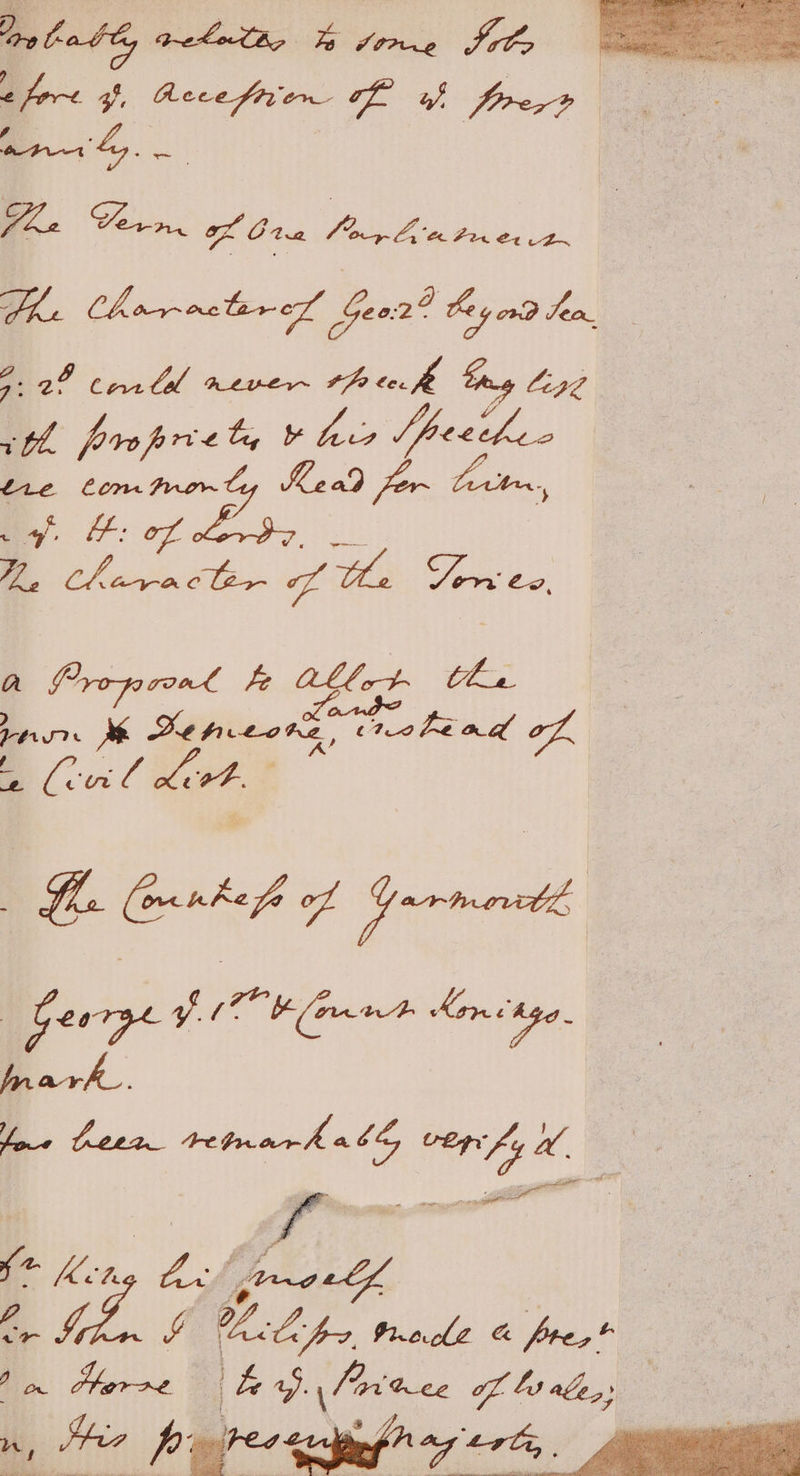 Probably relates to some Jobs
efore ye. Accession of ye. prest
amily. –
The Term of One Parliament
The Character of Geo: 2d. beyond Sea
G: 2d. could never speak English
ith propriety & his Speeches
ere commonly Read for him,
ye. H: of Lords. –
The Character of the Tories.
a Proposal to Allot the
rown Demeone, Lands instead of
e Civil List.
- The Countess of Yarmouth
George ye. 1st & Count Konings-
mark.
has been remarkably verify'd.
King himself
ir John Philips, made a prest
a Horse to ye. Prince of Wales;
n, His present Majesty.